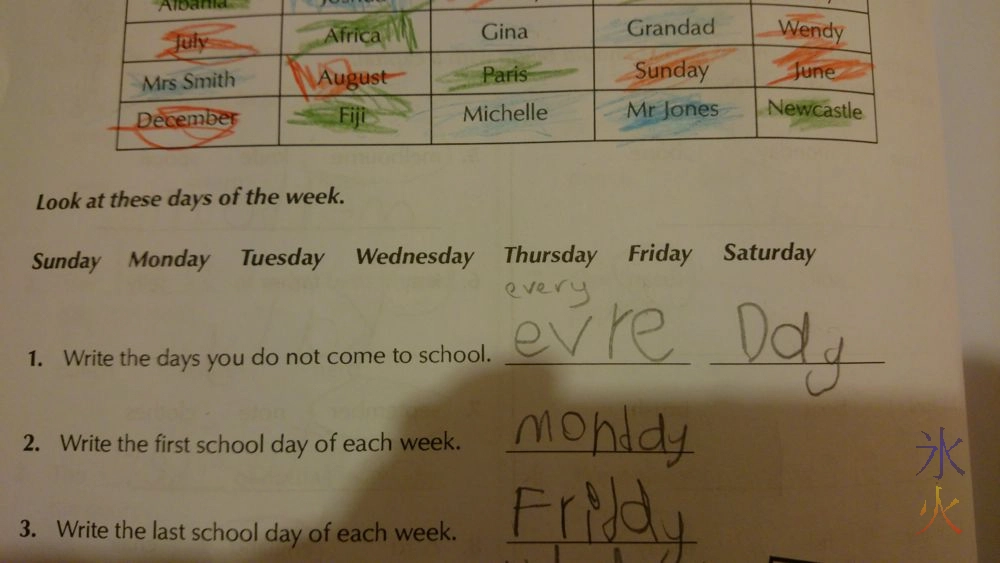 Albania Joshua
July Africa Gina Grandad Wendy
Mrs Smith August Paris Sunday June
December Fiji Michelle Mr Jones Newcastle
Look at these days of the week.
Sunday Monday Tuesday Wednesday Thursday Friday Saturday
every
1. Write the days you do not come to school. evre Day
2. Write the first school day of each week. monday
氷
3. Write the last school day of each week. Friday
火